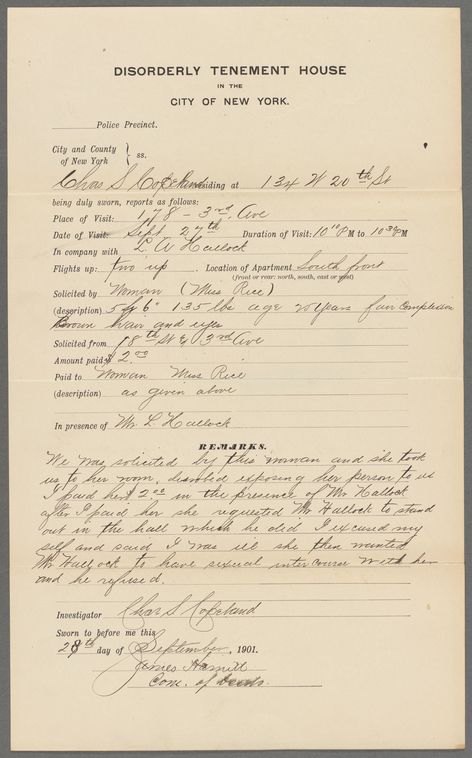 DISORDERLY TENEMENT HOUSE
IN THE
CITY OF NEW YORK.
Police Precinct.
City and County
of New York } ss.
Chas S Copeland residing at 134 W 20th St
being duly sworn, reports as follows:
Place of Visit: 178 - 3rd. Ave
Date of Visit: Sept 27th Duration of Visit: 10 10 P M to 10 30 P M
In company with L. A Hallock
Flights up: two up. Location of Apartment South front
(front or rear: north, south, east or west)
Solicited by Woman (Miss Rice)
(description) 5 ft 6" 135 lbs age 20 years fair complexion
Brown hair and eyes
Solicited from 18th St & 3rd Ave
Amount paid: $2.00
Paid to Woman Miss Rice
(description) as given above
In presence of Mr. L Hallock
REMARKS.
We was solicited by this woman and she took
us to her room, disrobed exposing her person to us
I paid her $2.00 in the presence of Mr Hallock
after I paid her she requested Mr Hallock to stand
out in the hall which he did I excused my
self and said I was ill she then wanted
Mr Hallock to have sexual inter course with her
and he refused.
Investigator Chas S Copeland
Sworn to before me this
28th day of September, 1901.
James
Com. of Deeds.